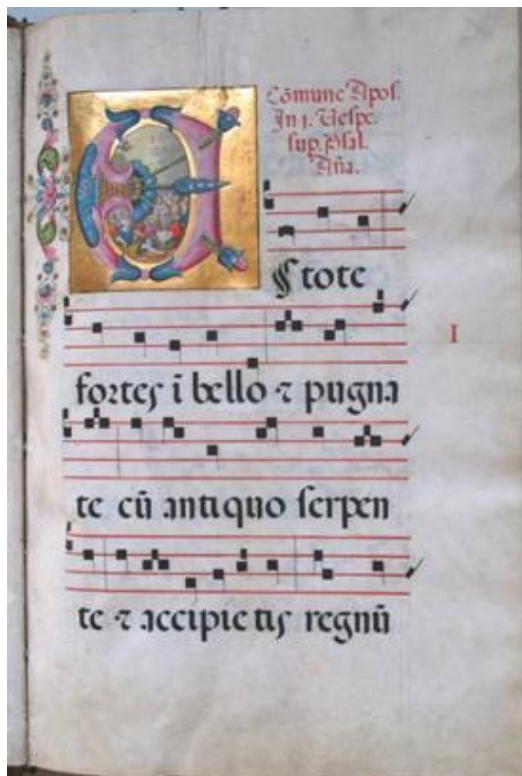 Cōmune Apos.
In 1. Vespe.
sup. Psal.
Añа.
Estote
fortes ī bello ⁊ pugna
I
te cū antiquo serpen
te ⁊ accipietis regnū